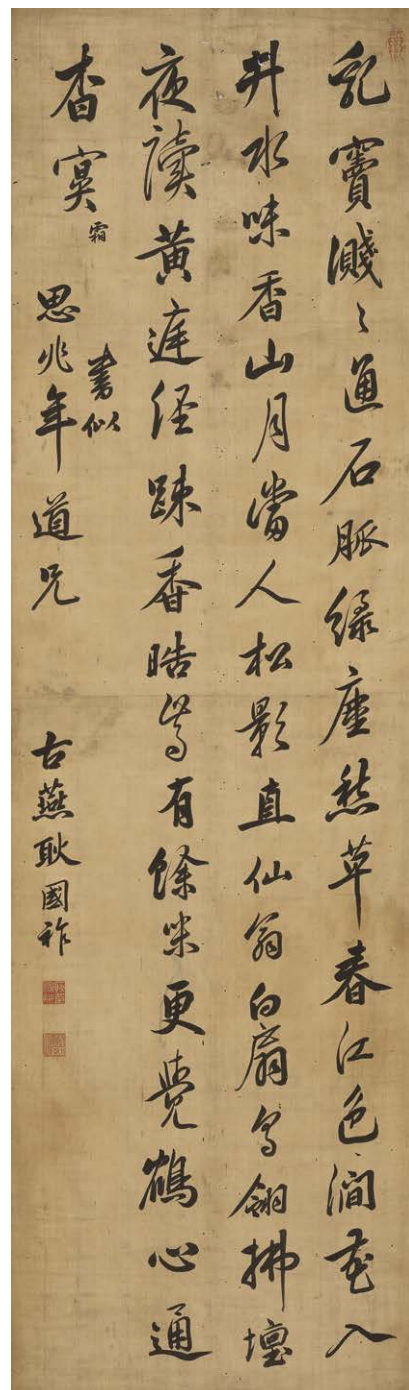 乳竇濺〻通石脈綠塵愁草春江色澗花入
井水味香山月當人松影直仙翁白扇鳥翎拂壇
夜讀黃庭經疎香皓齒有餘味更覺鶴心通
杳冥 霜
書似
思兆年道兄
古燕耿國祚